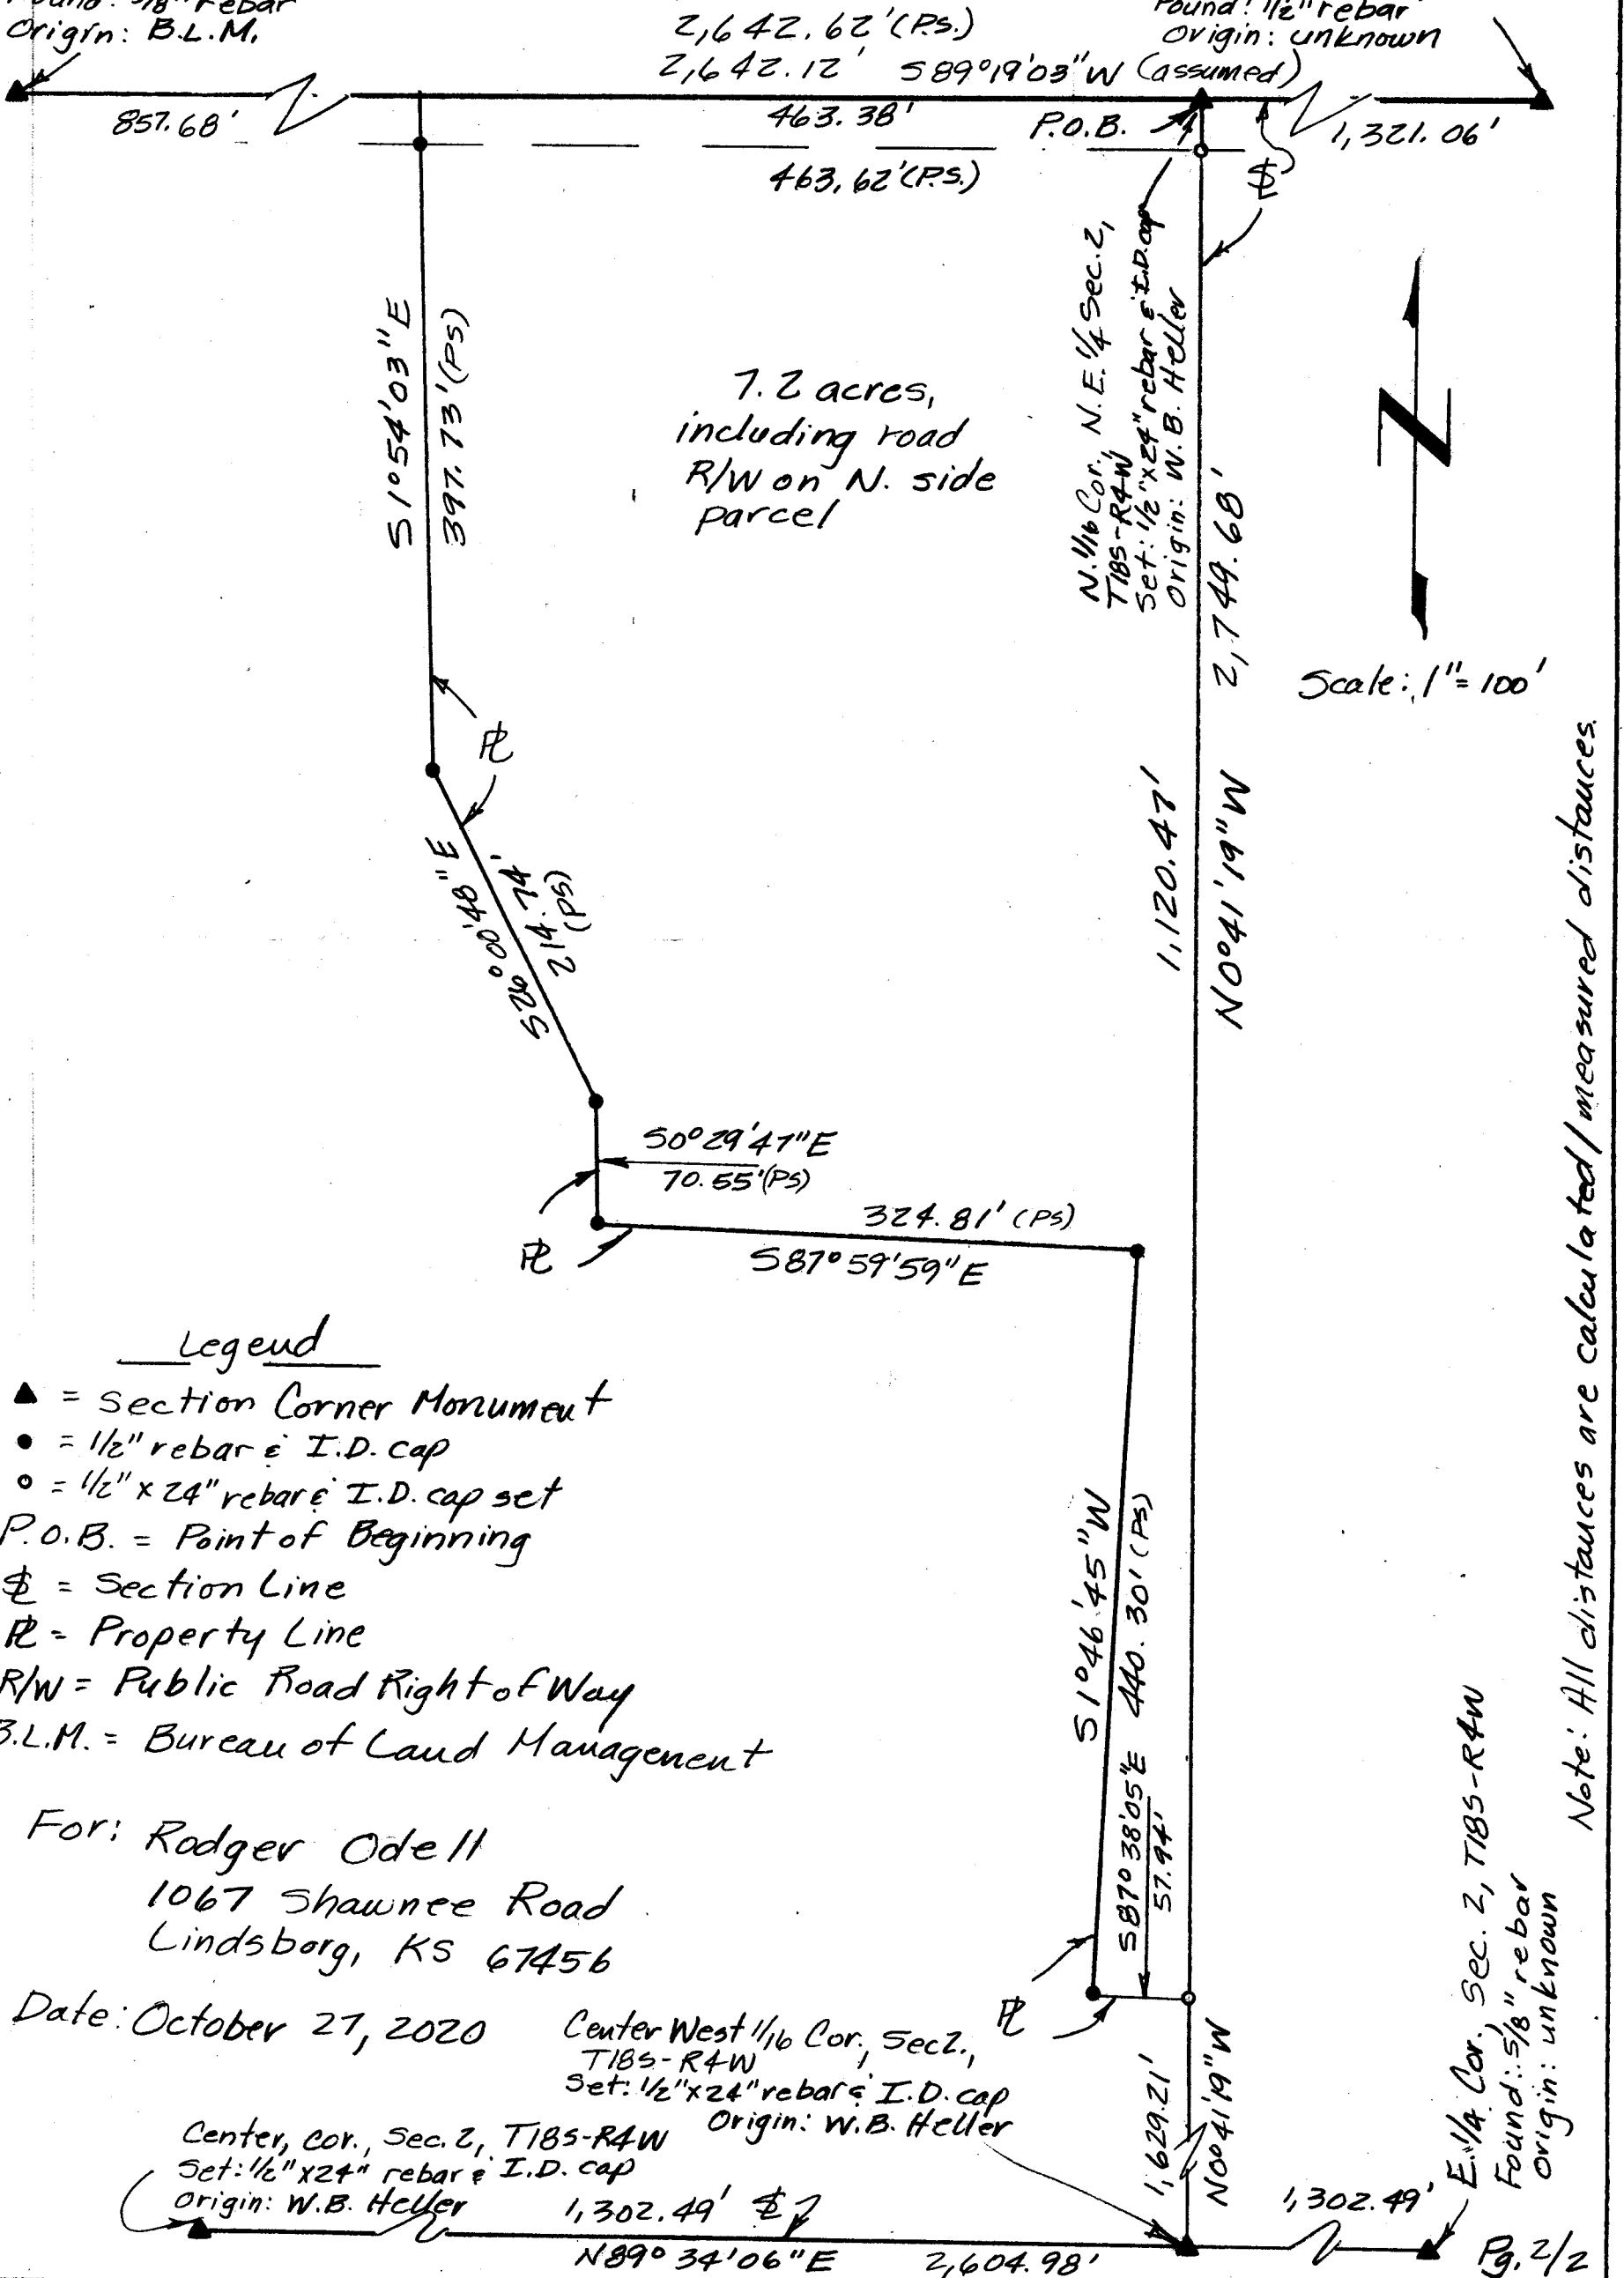 Found: 5/8" rebar
Origin: B.L.M.
2,642.62' (P.S.)
2,642.12' S89°19'03"W (assumed)
Found: 1/2" rebar
Origin: unknown
857.68'
463.38'
P.O.B.
1,321.06'
463.62' (P.S.)
S1°54'03"E
397.73' (PS)
7.2 acres,
including road
R/W on N. side
parcel
N. 1/16 Cor., N.E. 1/4 Sec. 2,
T18S-R4W
Set: 1/2" x 24" rebar & I.D. cap
Origin: W.B. Heller
2,749.68'
N0°41'19"W
1,120.47'
N
Scale: 1" = 100'
PL
S26°00'48"E
214.74'
(PS)
S0°29'47"E
70.55' (PS)
324.81' (PS)
PL
S87°59'59"E
Legend
▲ = Section Corner Monument
● = 1/2" rebar & I.D. cap
○ = 1/2" x 24" rebar & I.D. cap set
P.O.B. = Point of Beginning
= Section Line
PL = Property Line
R/W = Public Road Right of Way
B.L.M. = Bureau of Land Management
S1°46'45"W
440.30' (PS)
S87°38'05"E
57.94'
PL
For: Rodger Odell
1067 Shawnee Road
Lindsborg, KS 67456
Date: October 27, 2020
Center West 1/16 Cor., Sec 2.,
T18S-R4W
Set: 1/2" x 24" rebar & I.D. cap
Origin: W.B. Heller
Center, cor., Sec. 2, T18S-R4W
Set: 1/2" x 24" rebar & I.D. cap
Origin: W.B. Heller
1,302.49'
N89°34'06"E 2,604.98'
1,629.21'
N0°41'19"W
1,302.49'
E. 1/4 Cor., Sec. 2, T18S-R4W
Found: 5/8" rebar
Origin: unknown
Note: All distances are calculated/measured distances.
Pg. 2/2